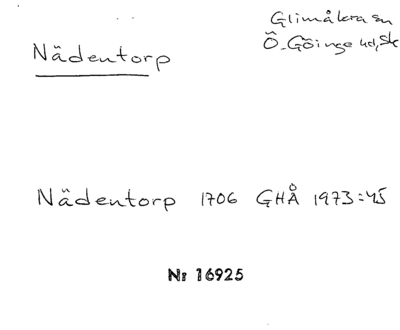 Glimåkra sn
Nädentorp
Ö. Göinge hd, Sk
Nädentorp 1706 GHÅ 1973:45
Nr 16925